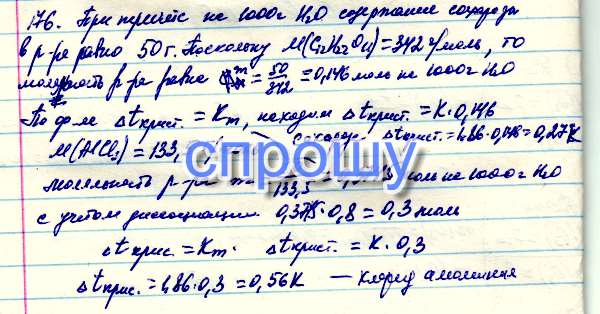 176. При пересчёте на 1000г H₂O содержание сахарозы
в р-ре равно 50г. Поскольку M(C₁₂H₂₂O₁₁)=342 г/моль, то
моляльность р-ра равна m = 50/342 = 0,146 моль на 1000г H₂O
По ф-ле Δtкрист. = Km, находим Δtкрист. = K·0,146
M(AlCl₃) = 133, сахароз. Δtкрист. = 1,86·0,146 = 0,27K
моляльность р-ра m = 133,5 моль на 1000г H₂O
с учётом диссоциации 0,375·0,8 = 0,3 моль
Δtкрис. = Km· Δtкрист. = K·0,3
Δtкрис. = 1,86·0,3 = 0,56K — хлорид алюминия
спрошу